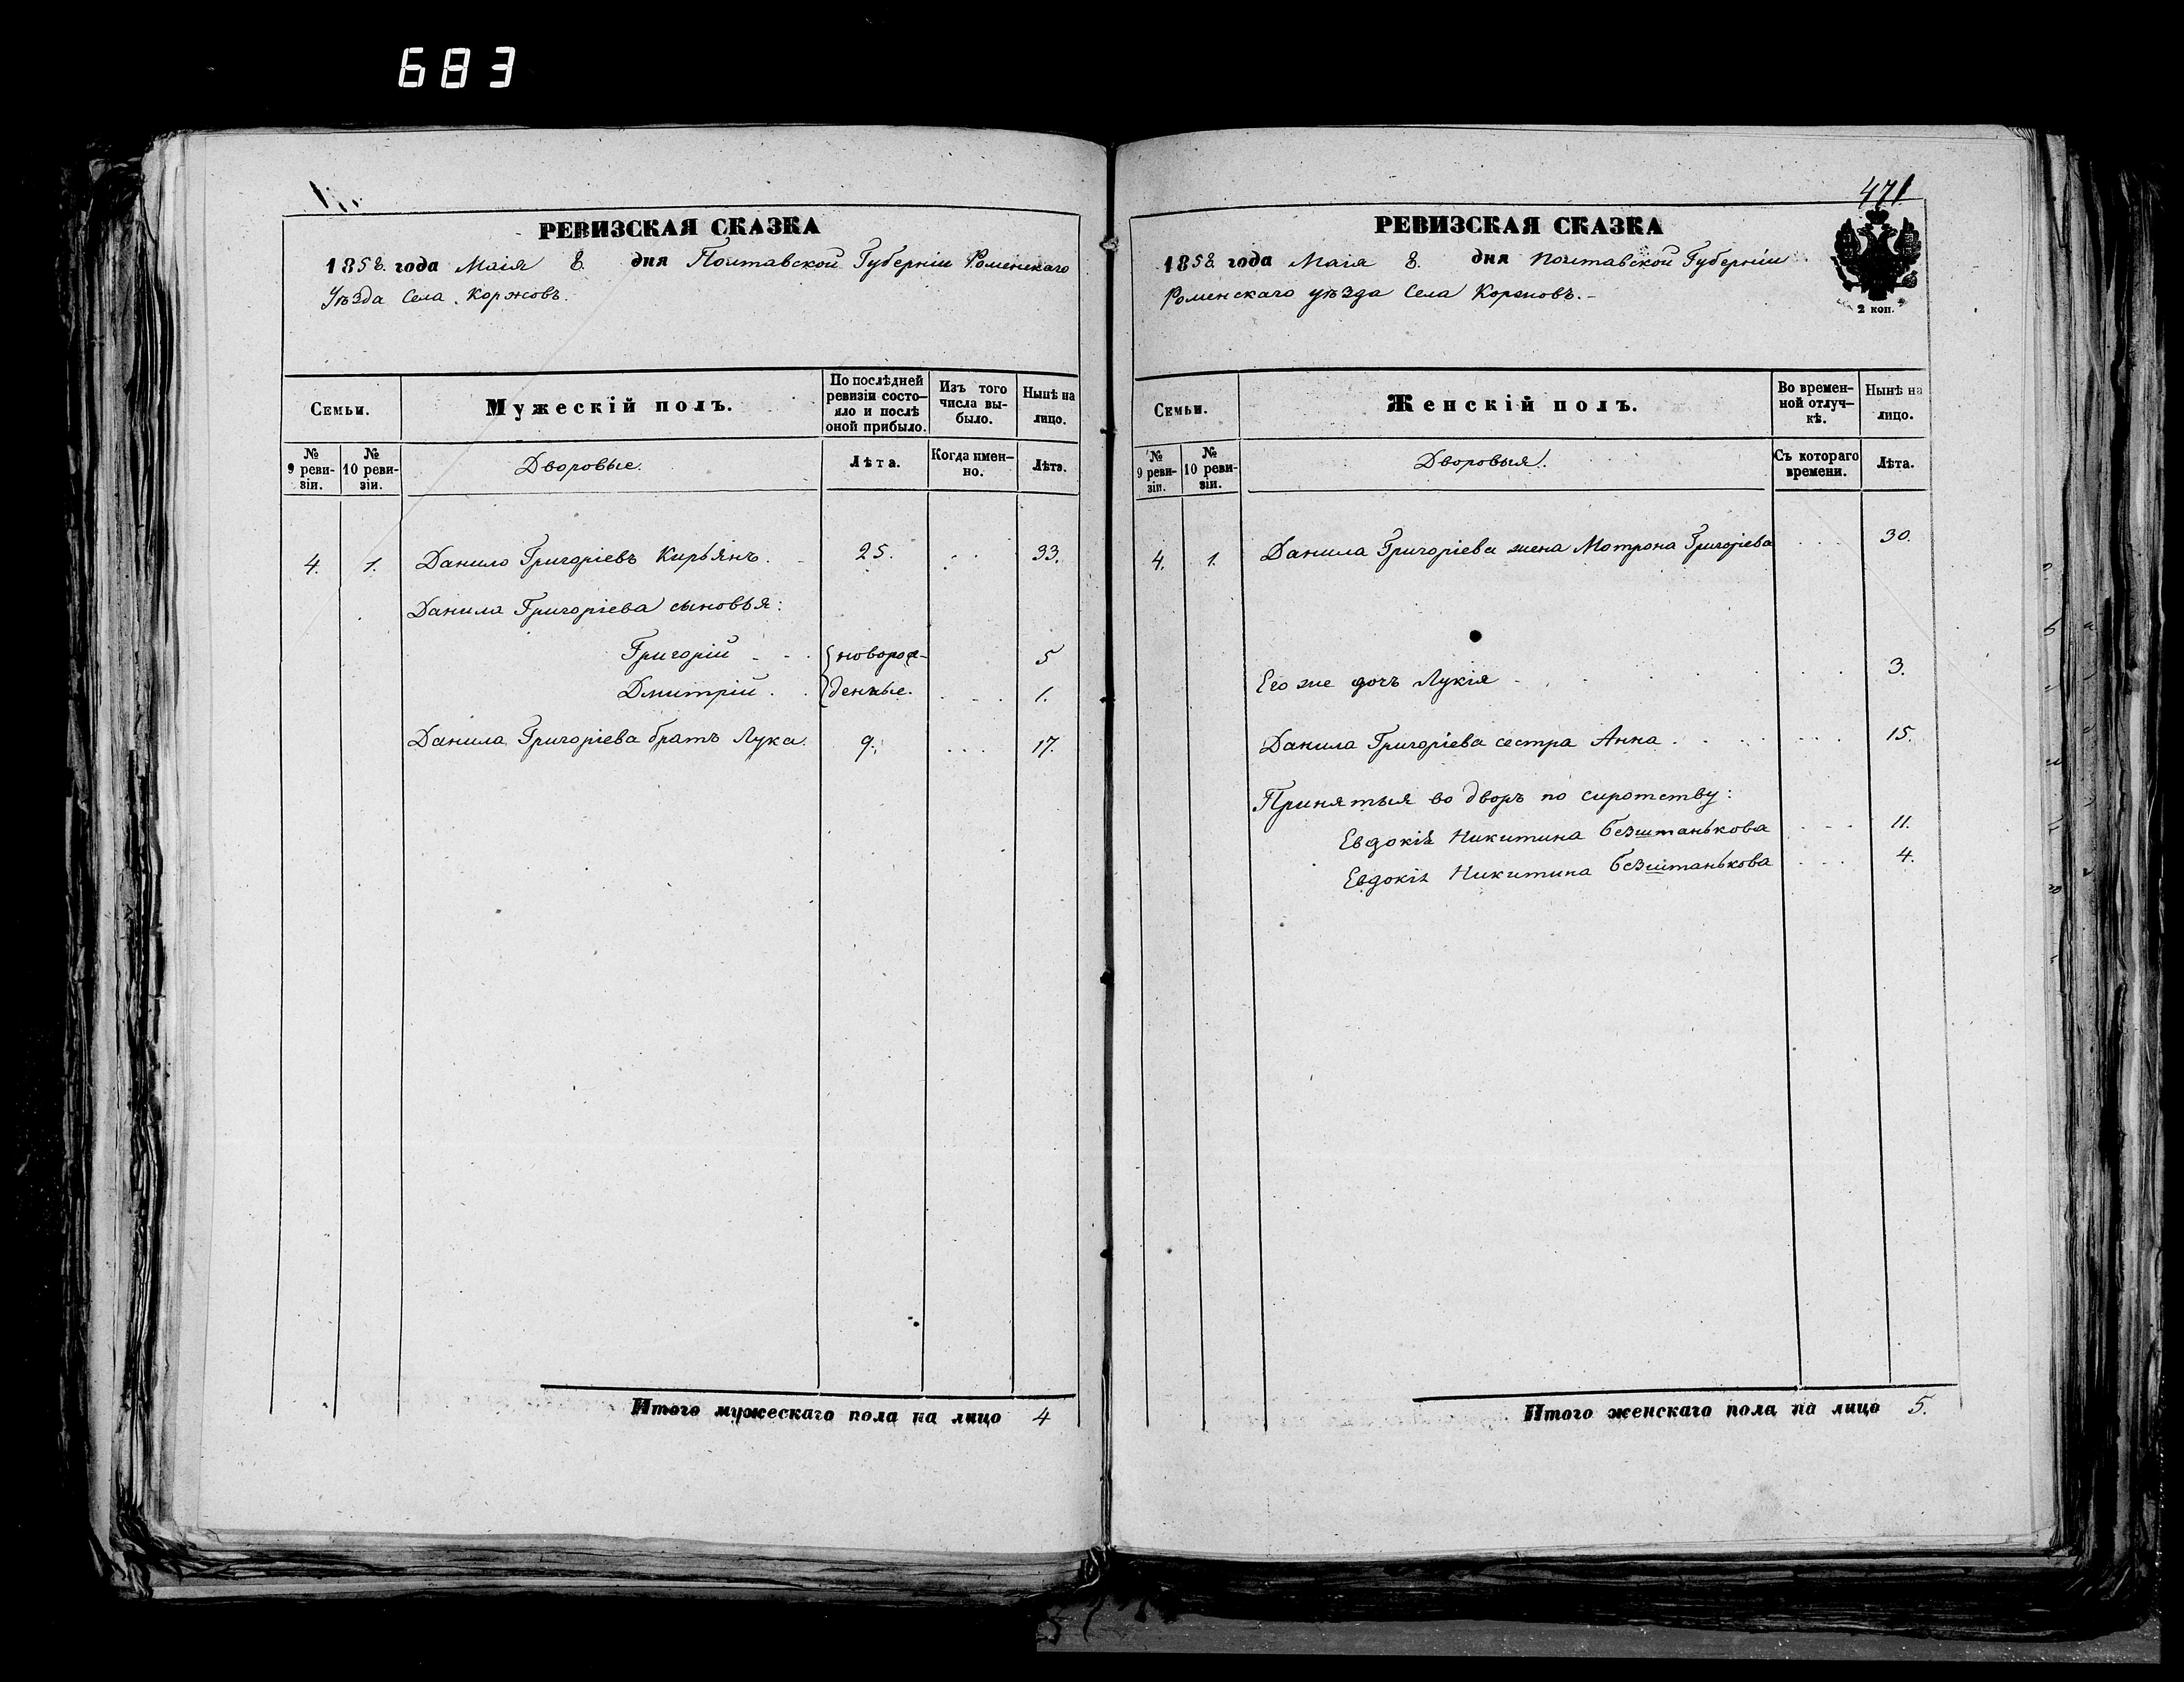 683
РЕВИЗСКАЯ СКАЗКА
1858. года Маія 8. дня Полтавской Губерніи Роменскаго
Уѣзда Села Коржовъ.
Семьи.
Мужескій полъ.
По послѣдней ревизіи состо-яло и послѣ оной прибыло.
Изъ того числа вы-было.
Нынѣ на лицо.
№ 9 реви-зіи.
№ 10 реви-зіи.
Дворовые.
Лѣта.
Когда имен-но.
Лѣта.
4. 1. Данило Григоріевъ Кирьянъ. 25. 33.
Данила Григоріева сыновья:
Григорій новорож- 5
Дмитрій денные. 1.
Данила Григоріева братъ Лука. 9. 17.
Итого мужескаго пола на лицо 4
471
РЕВИЗСКАЯ СКАЗКА
1858 года Маія 8. дня Полтавской Губерніи
Роменскаго уѣзда Села Коржовъ.
2 коп.
Семьи.
Женскій полъ.
Во времен-ной отлуч-кѣ.
Нынѣ на лицо.
№ 9 реви-зіи.
№ 10 реви-зіи.
Дворовыя.
Съ котораго времени.
Лѣта.
4. 1. Данила Григоріева жена Мотрона Григоріева 30.
Его же дочь Лукія 3.
Данила Григоріева сестра Анна 15.
Принятыя во дворъ по сиротству:
Евдокія Никитина Безштанькова 11.
Евдокія Никитина Безштанькова 4.
Итого женскаго пола на лицо 5.